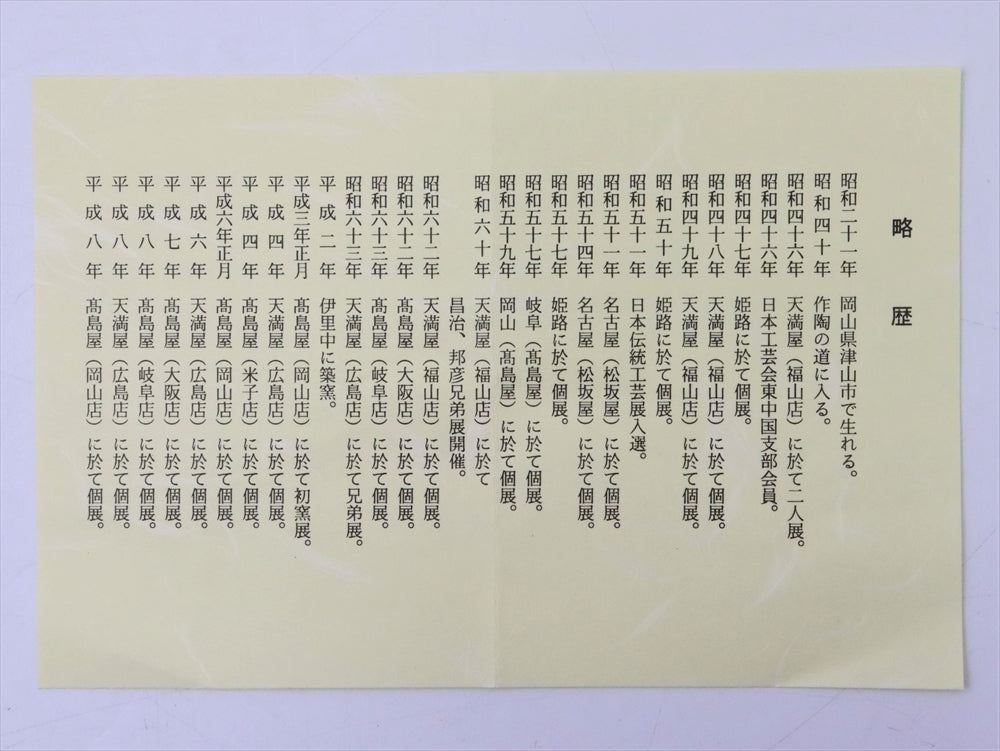 略歴
昭和二十一年 岡山県津山市で生れる。
昭和四十年 作陶の道に入る。
昭和四十六年 天満屋（福山店）に於て二人展。
昭和四十六年 日本工芸会東中国支部会員。
昭和四十七年 姫路に於て個展。
昭和四十八年 天満屋（福山店）に於て個展。
昭和四十九年 天満屋（福山店）に於て個展。
昭和五十年 姫路にて個展。
昭和五十一年 日本伝統工芸展入選。
昭和五十一年 名古屋（松坂屋）に於て個展。
昭和五十四年 名古屋（松坂屋）に於て個展。
昭和五十七年 姫路に於て個展。
昭和五十七年 岐阜（髙島屋）に於て個展。
昭和五十九年 岡山（髙島屋）に於て個展。
昭和六十年 天満屋（福山店）に於て
昌治、邦彦兄弟展開催。
昭和六十二年 天満屋（福山店）に於て個展。
昭和六十二年 髙島屋（大阪店）に於て個展。
昭和六十三年 髙島屋（岐阜店）に於て個展。
昭和六十三年 天満屋（広島店）に於て兄弟展。
平成二年 伊里中に築窯。
平成三年正月 髙島屋（岡山店）に於て初窯展。
平成四年 天満屋（広島店）に於て個展。
平成四年 髙島屋（米子店）に於て個展。
平成六年正月 髙島屋（岡山店）に於て個展。
平成六年 天満屋（広島店）に於て個展。
平成七年 髙島屋（大阪店）に於て個展。
平成八年 髙島屋（岐阜店）に於て個展。
平成八年 天満屋（広島店）に於て個展。
平成八年 髙島屋（岡山店）に於て個展。